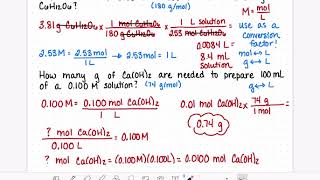 C₆H₁₂O₆?
(180 g/mol)
M = mol/L
3.81 g C₆H₁₂O₆ × 1 mol C₆H₁₂O₆/180 g C₆H₁₂O₆ × 1 L solution/2.53 mol C₆H₁₂O₆
use as a
conversion
factor!
0.0084 L =
8.4 mL
solution
mol ↔ L
g ↔ L
2.53 M = 2.53 mol/1 L → 2.53 mol = 1 L
How many g of Ca(OH)₂ are needed to prepare 100 mL
of a 0.100 M solution? (74 g/mol)
0.100 M = 0.100 mol Ca(OH)₂/1 L
0.01 mol Ca(OH)₂ × 74 g/1 mol
0.74 g
? mol Ca(OH)₂/0.100 L = 0.100 M
? mol Ca(OH)₂ = (0.100 M)(0.100 L) = 0.0100 mol Ca(OH)₂